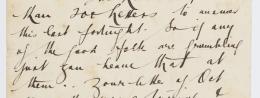 than 700 letters to answer
this last fortnight. So if any
of the good folk are grumbling
just you heave that at
them.. Your letter of Oct